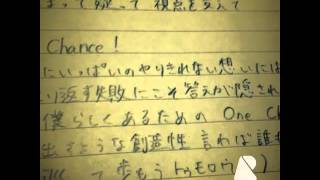 って疑って 視点を変えて
Chance!
にいっぱいのやりきれない想いには
り返す失敗にこそ答えが隠され
僕らしくあるための One Ch
出そうな創造性 言わば誰も
って歩もう トゥモロウ)